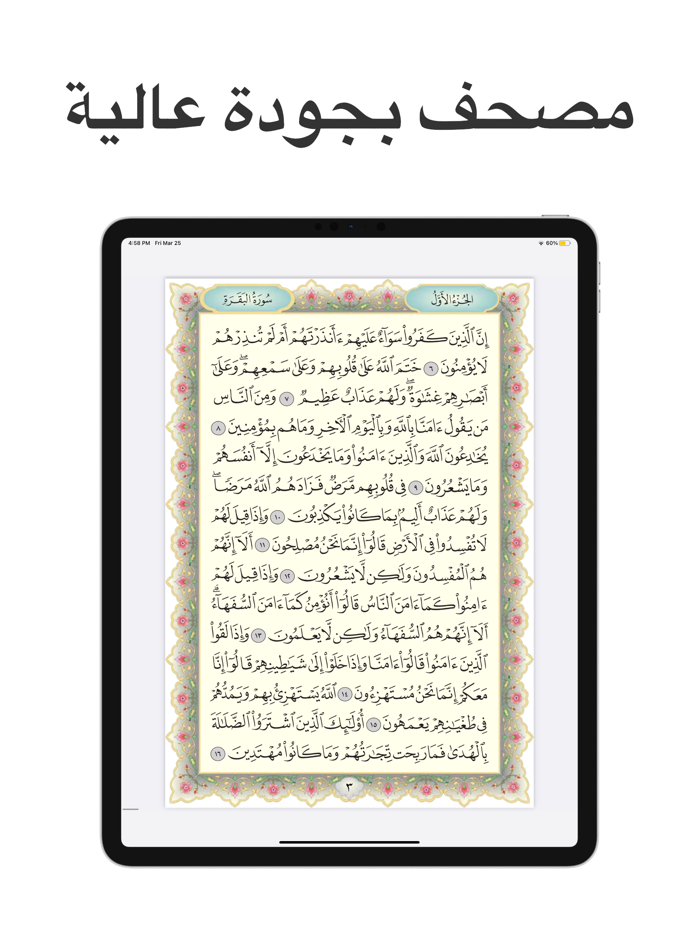 مصحف بجودة عالية
4:58 PM Fri Mar 25
60%
الجُزْءُ الأَوَّلُ
سُورَةُ البَقَرَةِ
إِنَّ ٱلَّذِينَ كَفَرُوا۟ سَوَآءٌ عَلَيْهِمْ ءَأَنذَرْتَهُمْ أَمْ لَمْ تُنذِرْهُمْ
لَا يُؤْمِنُونَ ٦ خَتَمَ ٱللَّهُ عَلَىٰ قُلُوبِهِمْ وَعَلَىٰ سَمْعِهِمْ ۖ وَعَلَىٰٓ
أَبْصَٰرِهِمْ غِشَٰوَةٌ ۖ وَلَهُمْ عَذَابٌ عَظِيمٌ ٧ وَمِنَ ٱلنَّاسِ
مَن يَقُولُ ءَامَنَّا بِٱللَّهِ وَبِٱلْيَوْمِ ٱلْءَاخِرِ وَمَا هُم بِمُؤْمِنِينَ ٨
يُخَٰدِعُونَ ٱللَّهَ وَٱلَّذِينَ ءَامَنُوا۟ وَمَا يَخْدَعُونَ إِلَّآ أَنفُسَهُمْ
وَمَا يَشْعُرُونَ ٩ فِى قُلُوبِهِم مَّرَضٌ فَزَادَهُمُ ٱللَّهُ مَرَضًا ۖ
وَلَهُمْ عَذَابٌ أَلِيمٌۢ بِمَا كَانُوا۟ يَكْذِبُونَ ١٠ وَإِذَا قِيلَ لَهُمْ
لَا تُفْسِدُوا۟ فِى ٱلْأَرْضِ قَالُوٓا۟ إِنَّمَا نَحْنُ مُصْلِحُونَ ١١ أَلَآ إِنَّهُمْ
هُمُ ٱلْمُفْسِدُونَ وَلَٰكِن لَّا يَشْعُرُونَ ١٢ وَإِذَا قِيلَ لَهُمْ
ءَامِنُوا۟ كَمَآ ءَامَنَ ٱلنَّاسُ قَالُوٓا۟ أَنُؤْمِنُ كَمَآ ءَامَنَ ٱلسُّفَهَآءُ ۗ
أَلَآ إِنَّهُمْ هُمُ ٱلسُّفَهَآءُ وَلَٰكِن لَّا يَعْلَمُونَ ١٣ وَإِذَا لَقُوا۟
ٱلَّذِينَ ءَامَنُوا۟ قَالُوٓا۟ ءَامَنَّا وَإِذَا خَلَوْا۟ إِلَىٰ شَيَٰطِينِهِمْ قَالُوٓا۟ إِنَّا
مَعَكُمْ إِنَّمَا نَحْنُ مُسْتَهْزِءُونَ ١٤ ٱللَّهُ يَسْتَهْزِئُ بِهِمْ وَيَمُدُّهُمْ
فِى طُغْيَٰنِهِمْ يَعْمَهُونَ ١٥ أُو۟لَٰٓئِكَ ٱلَّذِينَ ٱشْتَرَوُا۟ ٱلضَّلَٰلَةَ
بِٱلْهُدَىٰ فَمَا رَبِحَت تِّجَٰرَتُهُمْ وَمَا كَانُوا۟ مُهْتَدِينَ ١٦
٣